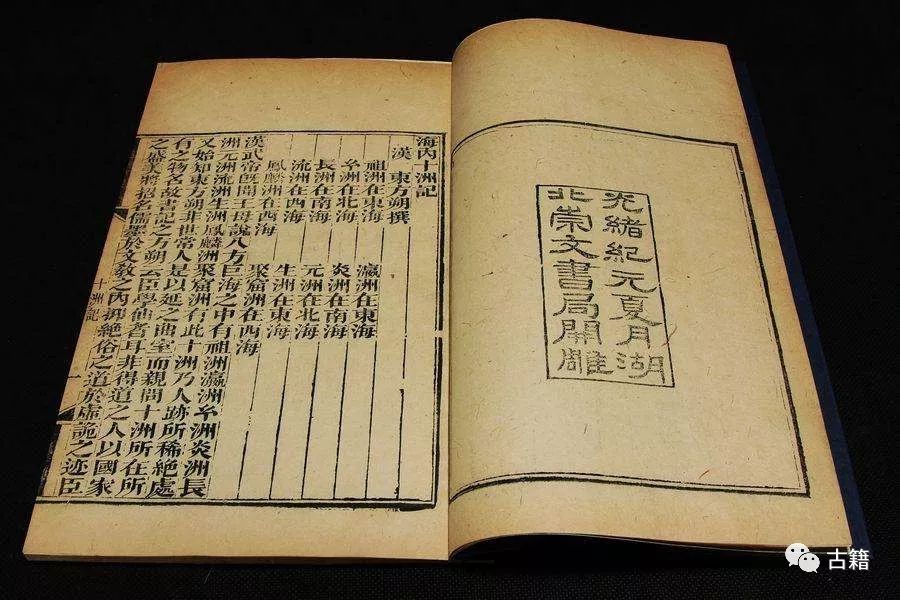 光緒紀元夏月湖
北崇文書局開雕
海內十洲記
漢 東方朔撰
祖洲在東海 瀛洲在東海
玄洲在北海 炎洲在南海
長洲在南海 元洲在北海
流洲在西海 生洲在東海
鳳麟洲在西海 聚窟洲在西海
漢武帝旣聞王母說八方巨海之中有祖洲瀛洲玄洲炎洲長
洲元洲流洲生洲鳳麟洲聚窟洲有此十洲乃人跡所稀絕處
又始知東方朔非世常人是以延之曲室而親問十洲所在所
有之物名故書記之方朔云臣學仙者耳非得道之人以國家
之盛美將招名儒墨於文教之內抑絕俗之道於虛詭之迹臣
十洲記
一
古籍